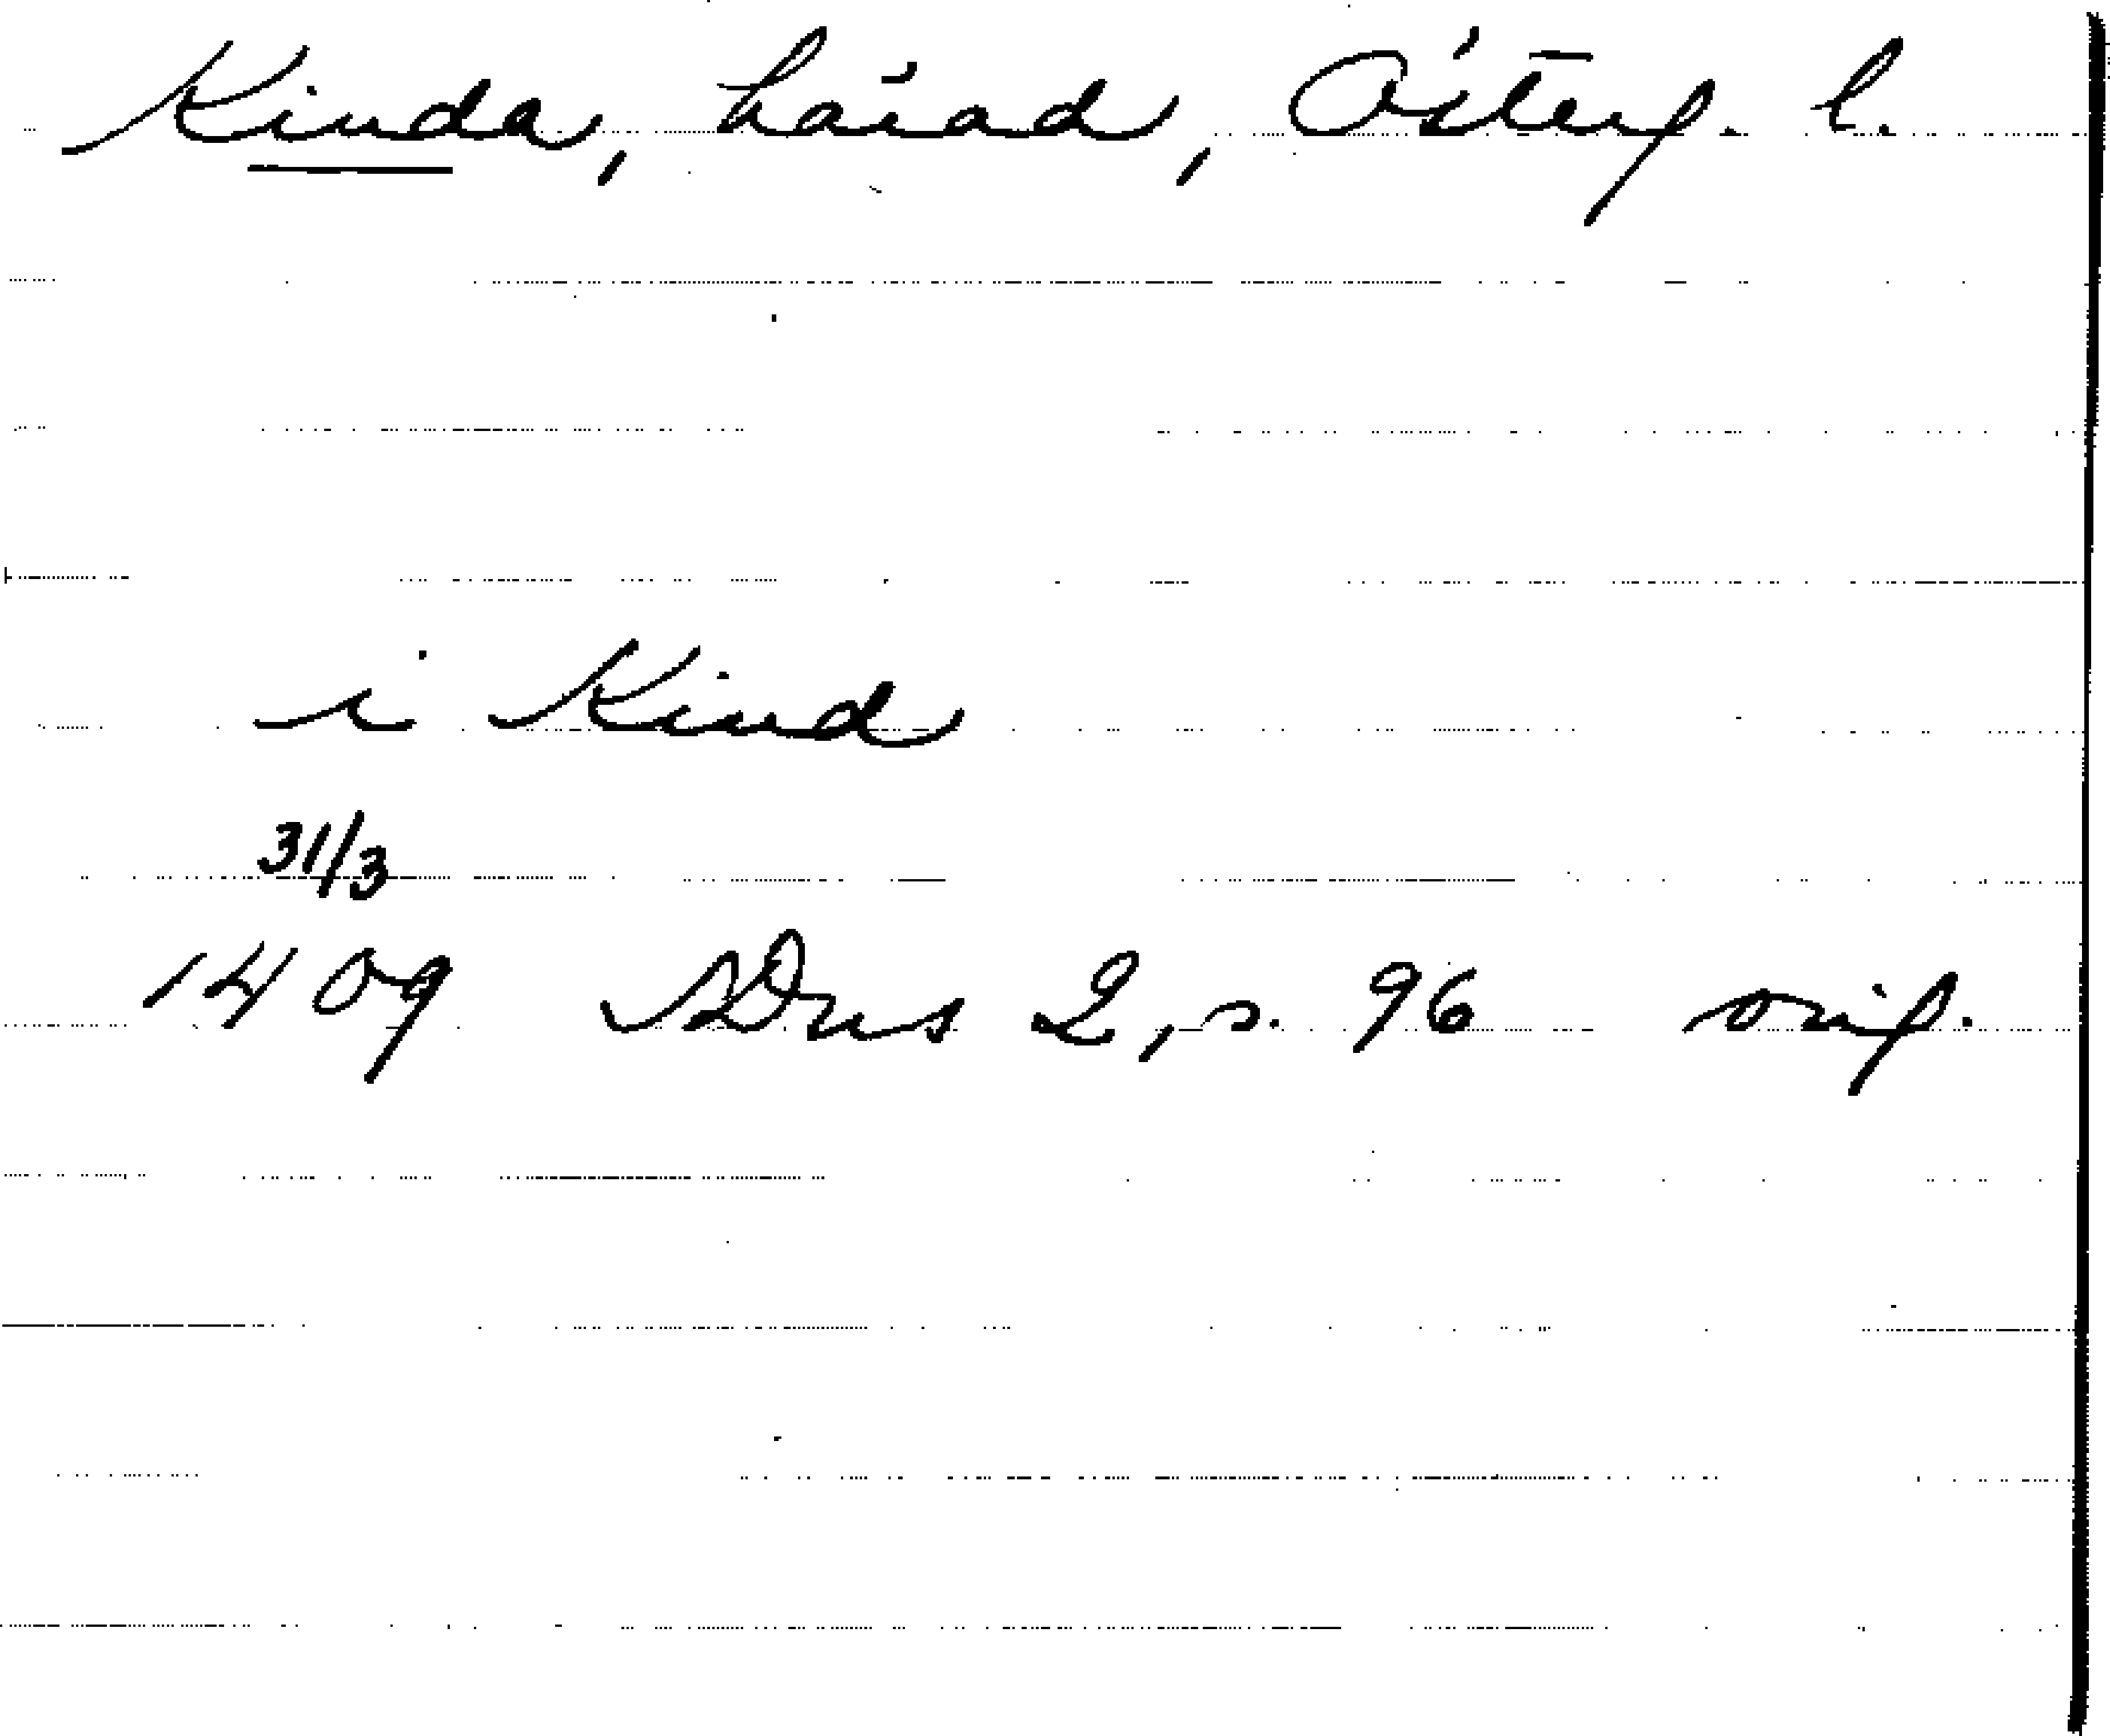 Kinda, härad, Österg. l.
i Kind
31/3
1409 SDns 2, s. 96 orig.